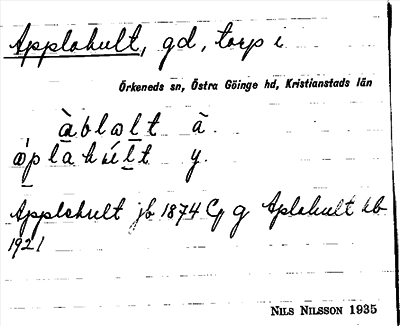 Applahult, gd, torp i
Örkeneds sn, Östra Göinge hd, Kristianstads län
àblalt ā.
y.
Applahult jb 1874 Cg g Aplahult kb
1921
NILS NILSSON 1935